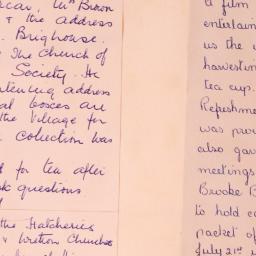 Mrs Brown
& the address
Brighouse.
The Church of
Society. He
address
boxes are
the Village for
Collection was
for tea after
questions
the Hatcheries
& Wretton Churches
a film
entertain
us the
harvesting
tea cup.
Refreshme
was prov
also gav
meetings
Brooke B
to hold a
packet of
July 21st